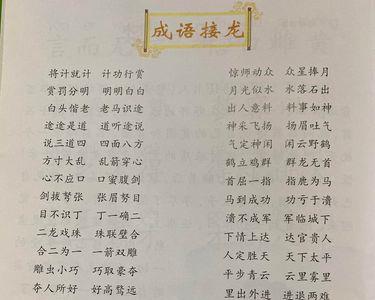 成语接龙
将计就计 计功行赏
赏罚分明 明明白白
白头偕老 老马识途
途途是道 道听途说
说三道四 四面八方
方寸大乱 乱箭穿心
心不应口 口蜜腹剑
剑拔弩张 张眉努目
目不识丁 丁一确二
二龙戏珠 珠联璧合
合二为一 一箭双雕
雕虫小巧 巧取豪夺
夺人所好 好高骛远
惊师动众 众星捧月
月光似水 水落石出
出人意料 料事如神
神采飞扬 扬眉吐气
气定神闲 闲云野鹤
鹤立鸡群 群龙无首
首屈一指 指鹿为马
马到成功 功亏于溃
溃不成军 军临城下
下情上达 达官贵人
人定胜天 天下太平
平步青云 云里雾里
里出外进 进退两难